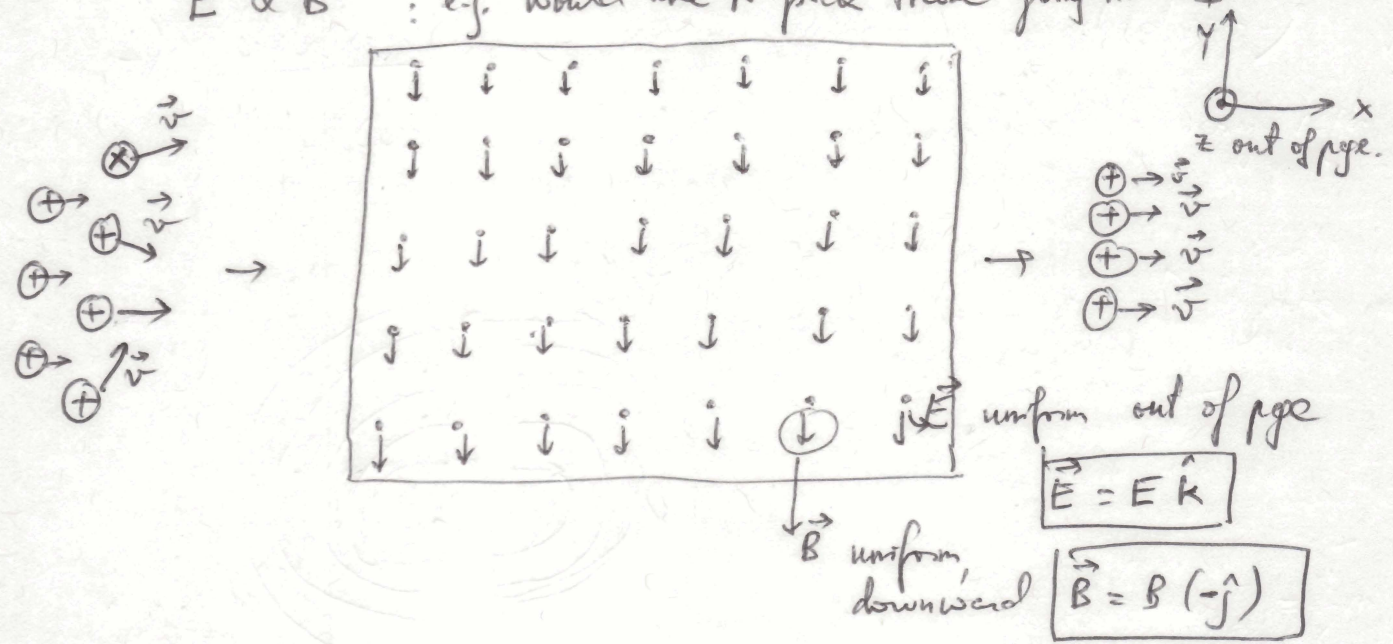 E & B : e.g. would like to pick those going in
Y
X
Z out of page.
v
v
v
v
v
v
v
E uniform out of page
E = E k̂
B uniform,
downward
B = B (-ĵ)